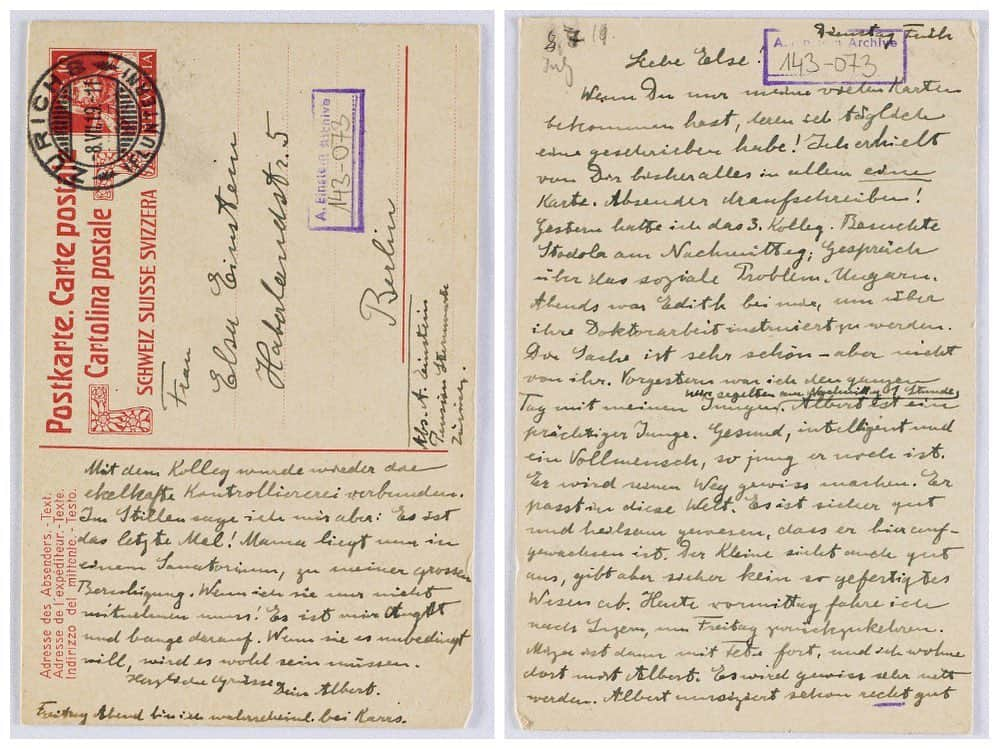 Postkarte. Carte postale
Cartolina postale
SCHWEIZ SUISSE SVIZZERA
A. Einstein Archive
143-073
Frau
Elsa Einstein
Haberlandstr. 5
Berlin
Abs. A. Einstein
Pension Sternwarte
Zürich.
Adresse des Absenders. - Text.
Adresse de l'expéditeur. - Texte.
Indirizzo del mittente. - Testo.
Mit dem Kolleg wurde wieder die
ekelhafte Kontrolliererei verbunden.
Im Stillen sage ich mir aber: Es ist
das letzte Mal! Mama liegt nun in
einem Sanatorium, zu meiner grossen
Beruhigung. Wenn ich sie nur nicht
mitnehmen muss! Es ist mir Angst
und bange darauf. Wenn sie es unbedingt
will, wird es wohl sein müssen.
Herzliche Grüsse
Dein Albert.
Freitag Abend bin ich wahrscheinl. bei Karrs.
19.
Dienstag Früh
A. Einstein Archive
143-073
Liebe Else!
Wenn Du nur meine vielen Karten
bekommen hast, deren ich täglich
eine geschrieben habe! Ich erhielt
von Dir bisher alles in allem eine
Karte. Absender draufschreiben!
Gestern hatte ich das 3. Kolleg. Besuchte
Stodola am Nachmittag; Gespräch
über das soziale Problem. Ungarn.
Abends war Edith bei mir, um über
ihre Doktorarbeit instruiert zu werden.
Die Sache ist sehr schön – aber nicht
von ihr. Vorgestern war ich den ganzen
wir segelten am Nachmittag Stunden
Tag mit meinen Jungen. Albert ist ein
prächtiger Junge. Gesund, intelligent und
ein Vollmensch, so jung er noch ist.
Er wird seinen Weg gewiss machen. Er
passt in diese Welt. Es ist sicher gut
und heilsam gewesen, dass er hier auf-
gewachsen ist. Der Kleine sieht auch gut
aus, gibt aber sicher kein so gefertigtes
Wesen ab. Heute vormittag fahre ich
nach Luzern, um Freitag zurückzukehren.
Miza ist dann mit Tete fort, und ich wohne
dort mit Albert. Es wird gewiss sehr nett
werden. Albert musiziert schon recht gut